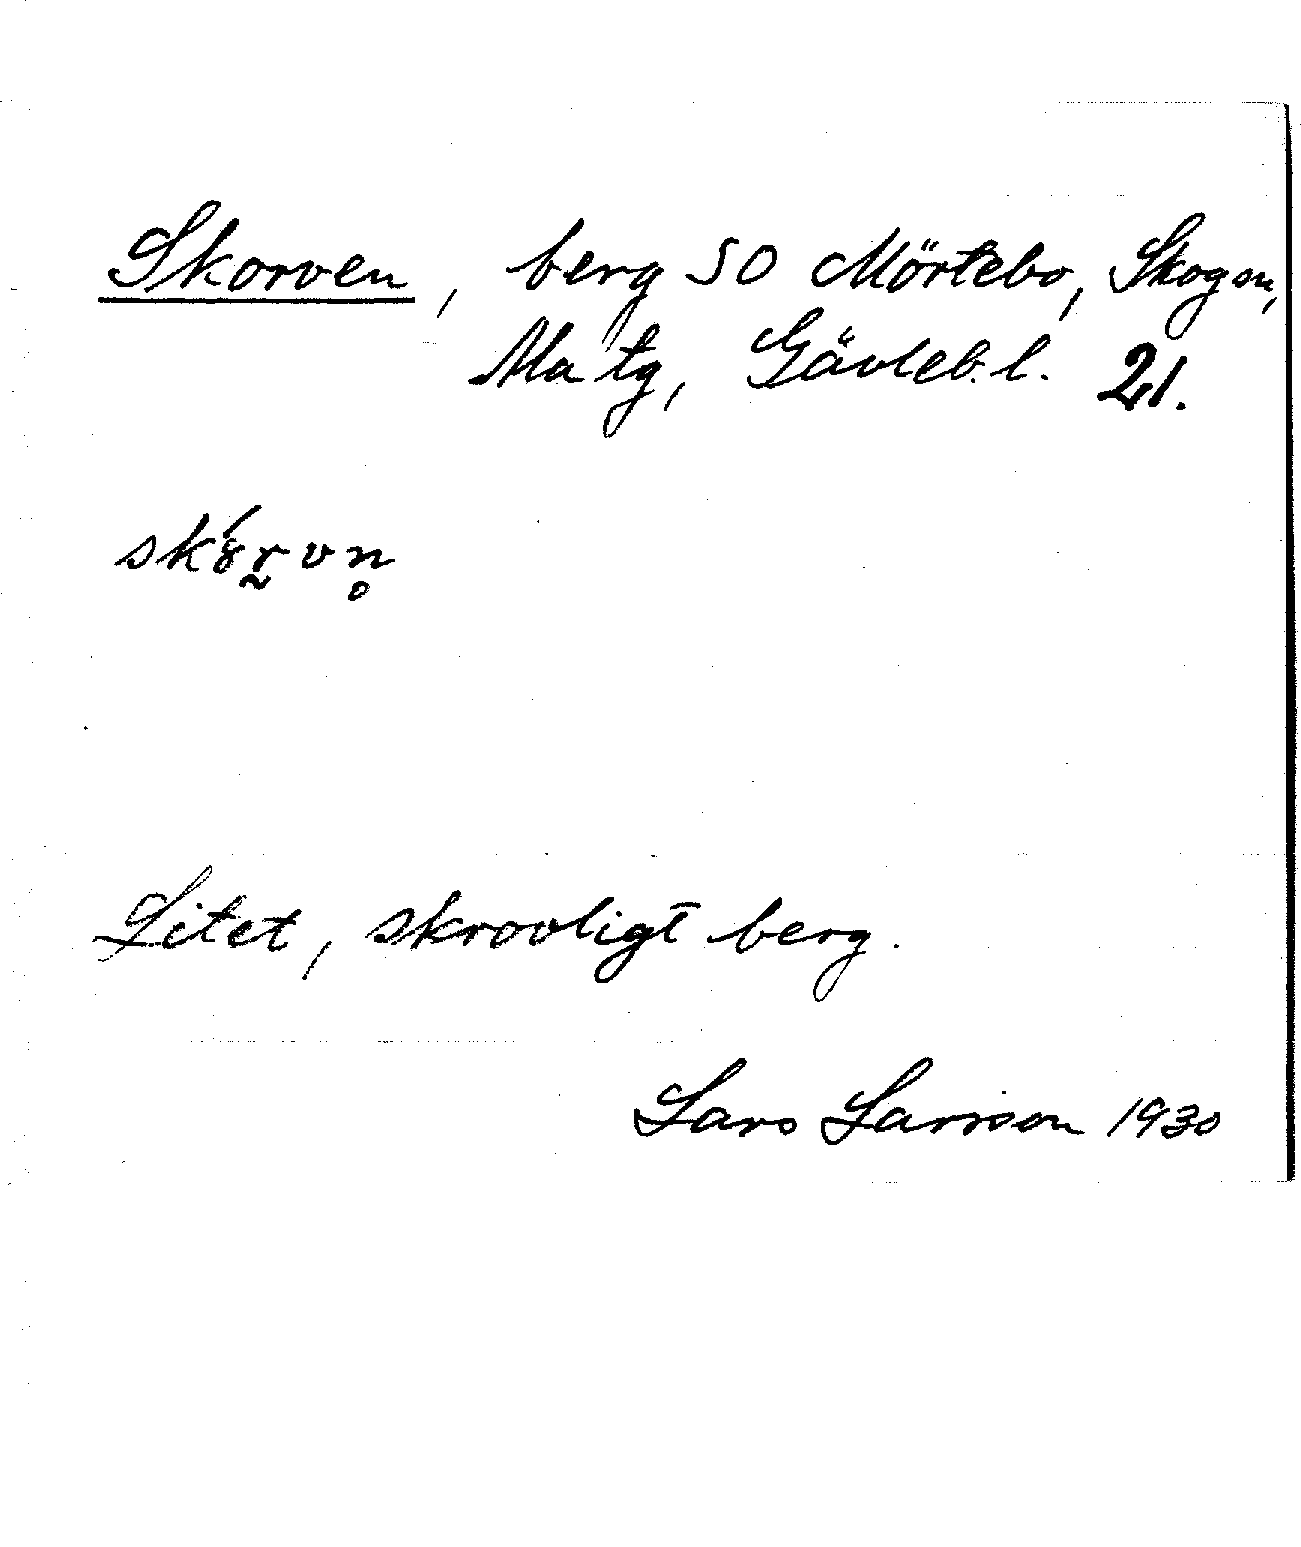 Skorven, berg SO Mörtebo, Skogen,
Ma tg, Gävleb. l. 21.
Litet, skrovligt berg.
Lars Larsson 1930